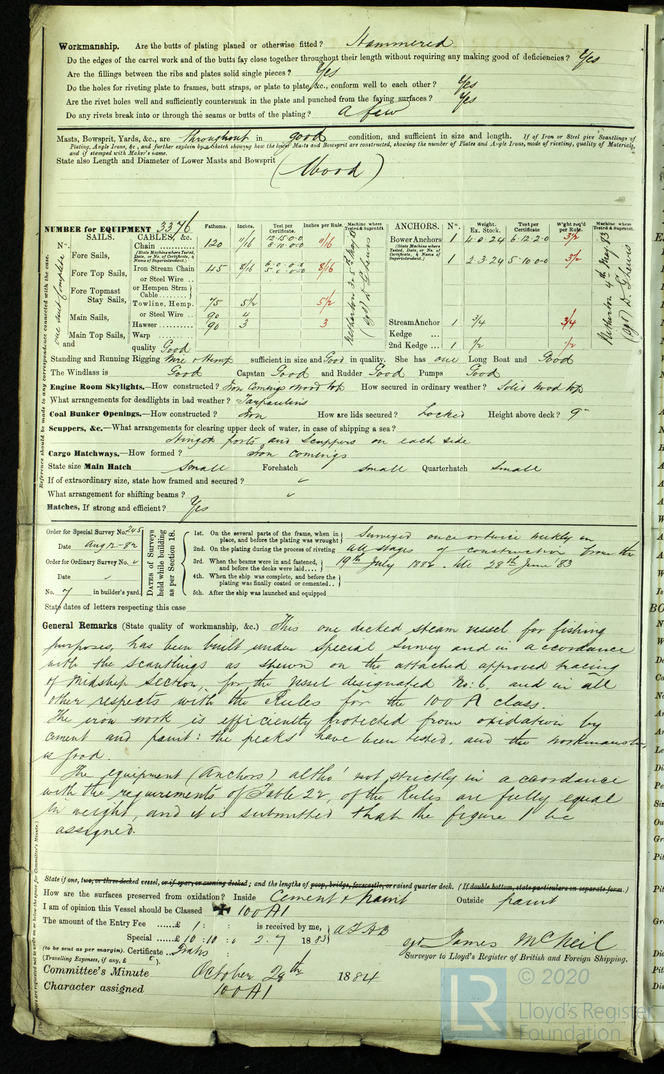 Workmanship. Are the butts of plating planed or otherwise fitted? Hammered
Do the edges of the carvel work and of the butts fay close together throughout their length without requiring any making good of deficiencies? Yes
Are the fillings between the ribs and plates solid single pieces? Yes
Do the holes for riveting plate to frames, butt straps, or plate to plate, &c., conform well to each other? Yes
Are the rivet holes well and sufficiently countersunk in the plate and punched from the faying surfaces? Yes
Do any rivets break into or through the seams or butts of the plating? a few
Masts, Bowsprit, Yards, &c., are throughout in good condition, and sufficient in size and length. If of Iron or Steel give Scantlings of
Plating, Angle Irons, &c., and further explain by a Sketch showing how the lower Masts and Bowsprit are constructed, showing the number of Plates and Angle Irons, mode of riveting, quality of Materials,
and if stamped with Maker's name.
State also Length and Diameter of Lower Masts and Bowsprit (Wood)
NUMBER for EQUIPMENT 3376
Fathoms. Inches. Test per Certificate Inches per Rule Machine where Tested & Superint.
ANCHORS. Nº. Weight. Ex. Stock. Test per Certificate W'ght req'd per Rule. Machine where Tested & Superint.
N.º SAILS. CABLES, &c.
one suit complete
Fore Sails,
Fore Top Sails,
Fore Topmast Stay Sails,
Main Sails,
Main Top Sails,
and
Chain 120 11/16 12.15.0.0 11/16
(State Machine where Tested, Date, or No. of Certificate, & Name of Superintendent.)
Iron Stream Chain 45 8/16 8/16
or Steel Wire
or Hempen Strm Cable
Towline, Hemp. 75 5½ 5½
or Steel Wire 90 4
Hawser 90 3 3
Warp
quality Good
Bower Anchors 1 4.0.24 6.12.2.0 3½
(State Machine where Tested, Date, or No. of Certificate, & Name of Superintendent.)
1 2.3.24 5.10.0.0 3½
Stream Anchor 1 ¾ ¾
Kedge
2nd Kedge 1 ½ ½
Netherton 4th May 83 (sgd) D. Lewis
Standing and Running Rigging Wire & Hemp sufficient in size and Good in quality. She has one Long Boat and Good
The Windlass is Good Capstan Good and Rudder Good Pumps Good
Engine Room Skylights.—How constructed? Iron comings wood top How secured in ordinary weather? Solid wood top
What arrangements for deadlights in bad weather? Tarpaulins
Coal Bunker Openings.—How constructed? Iron How are lids secured? Locked Height above deck? 9"
Scuppers, &c.—What arrangements for clearing upper deck of water, in case of shipping a sea?
Hinged ports and scuppers on each side
Cargo Hatchways.—How formed? Iron comings
State size Main Hatch small Forehatch small Quarterhatch small
If of extraordinary size, state how framed and secured? "
What arrangement for shifting beams? "
Hatches, If strong and efficient? Yes
Order for Special Survey No. 245
Date Aug 12 - 82
Order for Ordinary Survey No. "
Date "
No. 7 in builder's yard.
DATES of Surveys held while building as per Section 18.
1st. On the several parts of the frame, when in place, and before the plating was wrought
2nd. On the plating during the process of riveting
3rd. When the beams were in and fastened, and before the decks were laid
4th. When the ship was complete, and before the plating was finally coated or cemented
5th. After the ship was launched and equipped
Surveyed once or twice weekly in
all stages of construction from the
19th July 1882 till 28th June '83
State dates of letters respecting this case
General Remarks (State quality of workmanship, &c.) This one decked steam vessel for fishing
purposes, has been built under Special Survey and in accordance
with the scantlings as shewn on the attached approved tracing
of Midship Section, for the vessel designated No: 6, and in all
other respects with the Rules for the 100 A class.
The iron work is efficiently protected from oxidation by
cement and paint: the peaks have been tested, and the workmanship
is good.
The equipment (Anchors) altho' not strictly in accordance
with the requirements of Table 22, of the Rules are fully equal
in weight, and it is submitted that the figure 1 be
assigned.
State if one, two, or three decked vessel, or if spar, or awning decked; and the lengths of poop, bridge, forecastle, or raised quarter deck. (If double bottom, state particulars in separate form.)
How are the surfaces preserved from oxidation? Inside Cement & paint Outside paint
I am of opinion this Vessel should be Classed ✠ 100 A1
The amount of the Entry Fee £ 1 : : is received by me,
Special £ 10 : 10 : 0 2.7 1883
(to be sent as per margin). Certificate Gratis
(Travelling Expenses, if any, £ ).
sgd James McNeil
Surveyor to Lloyd's Register of British and Foreign Shipping.
Committee's Minute October 28th 1884
Character assigned 100 A1
Reference should be made to any correspondence connected with the case.
LR
© 2020
Lloyd's Register
Foundation